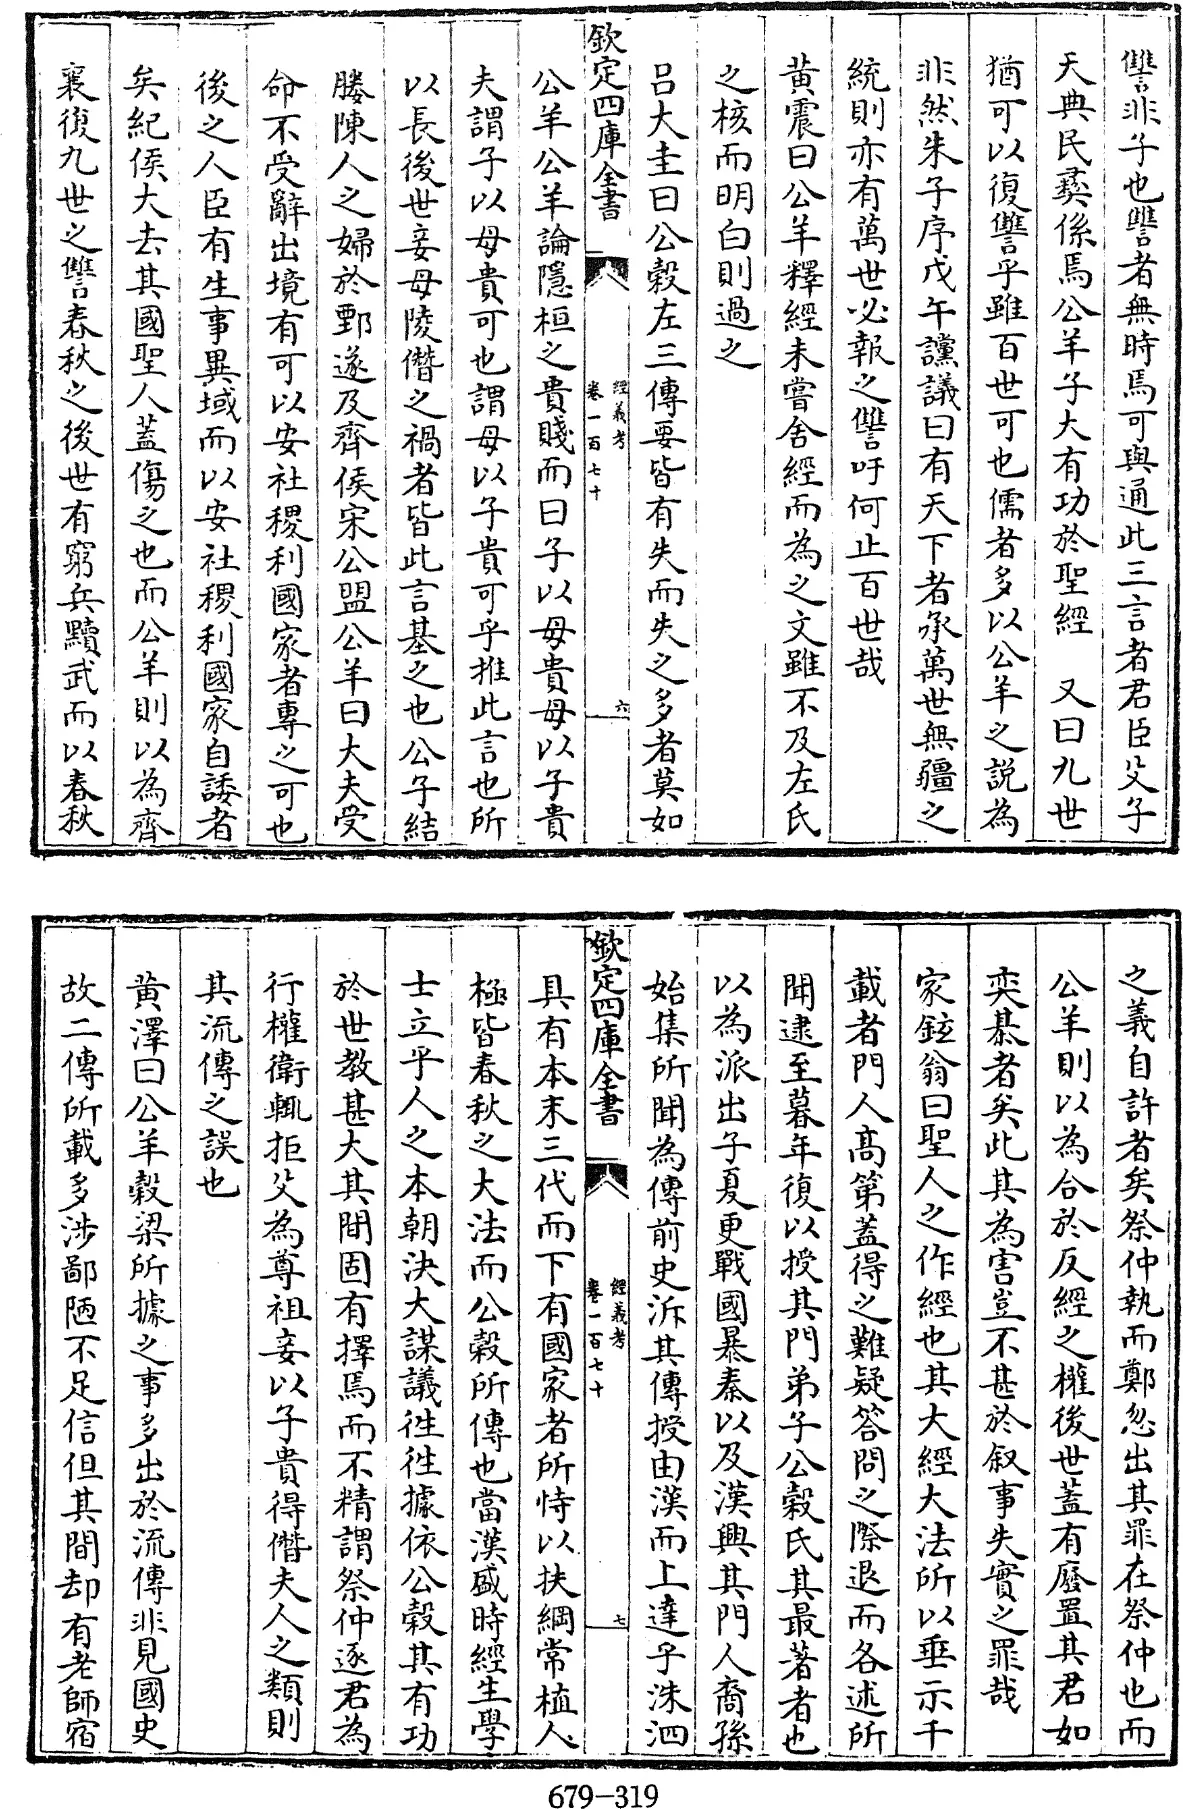 讐非子也讐者無時焉可與通此三言者君臣父子
天典民彞係焉公羊子大有功於聖經　又曰九世
猶可以復讐乎雖百世可也儒者多以公羊之說為
非然朱子序戊午讜議曰有天下者承萬世無疆之
統則亦有萬世必報之讐吁何止百世哉
黃震曰公羊釋經未嘗舍經而為之文雖不及左氏
之核而明白則過之
呂大圭曰公穀左三傳要皆有失而失之多者莫如
欽定四庫全書
經義考
卷一百七十
六
公羊公羊論隱桓之貴賤而曰子以母貴母以子貴
夫謂子以母貴可也謂母以子貴可乎推此言也所
以長後世妾母陵僭之禍者皆此言基之也公子結
媵陳人之婦於鄄遂及齊侯宋公盟公羊曰大夫受
命不受辭出境有可以安社稷利國家者專之可也
後之人臣有生事異域而以安社稷利國家自諉者
矣紀侯大去其國聖人蓋傷之也而公羊則以為齊
襄復九世之讐春秋之後世有窮兵黷武而以春秋
之義自許者矣祭仲執而鄭忽出其罪在祭仲也而
公羊則以為合於反經之權後世蓋有廢置其君如
奕棊者矣此其為害豈不甚於叙事失實之罪哉
家鉉翁曰聖人之作經也其大經大法所以垂示千
載者門人高第蓋得之難疑答問之際退而各述所
聞逮至暮年復以授其門弟子公穀氏其最著者也
以為派出子夏更戰國暴秦以及漢興其門人裔孫
始集所聞為傳前史泝其傳授由漢而上達子洙泗
欽定四庫全書
經義考
卷一百七十
七
具有本末三代而下有國家者所恃以扶綱常植人
極皆春秋之大法而公穀所傳也當漢盛時經生學
士立乎人之本朝決大謀議徃徃據依公穀其有功
於世教甚大其間固有擇焉而不精謂祭仲逐君為
行權衛輒拒父為尊祖妾以子貴得僭夫人之類則
其流傳之誤也
黃澤曰公羊穀梁所據之事多出於流傳非見國史
故二傳所載多涉鄙陋不足信但其間却有老師宿
679-319